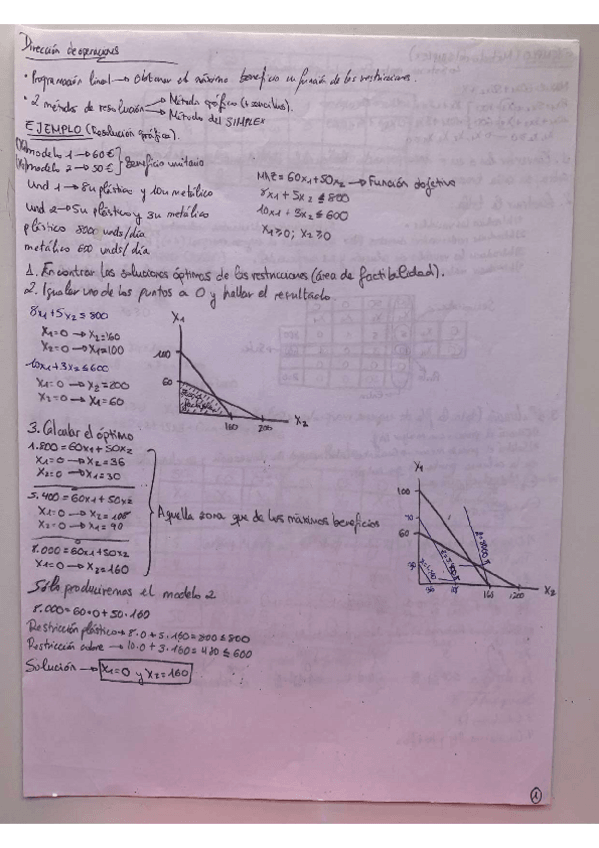 Dirección de operaciones
• Programación lineal → obtener el máximo beneficio en función de las restricciones.
• 2 métodos de resolución → Método gráfico (+ sencillos).
→ Método del SIMPLEX
EJEMPLO (Resolución gráfica).
(X1) modelo 1 → 60€
(X2) modelo 2 → 50€ } Beneficio unitario
Und 1 → 8u plástico y 10u metálico
Und 2 → 5u plástico y 3u metálico
plástico 800 unds/día
metálico 600 unds/día
MAZ = 60x1 + 50x2 → Función objetiva
8x1 + 5x2 ≤ 800
10x1 + 3x2 ≤ 600
X1 ≥ 0; X2 ≥ 0
1. Encontrar las soluciones óptimas de las restricciones (área de factibilidad).
2. Igualar uno de los puntos a 0 y hallar el resultado.
8x1 + 5x2 ≤ 800
X1=0 → X2=160
X2=0 → X1=100
10x1 + 3x2 ≤ 600
X1=0 → X2=200
X2=0 → X1=60
X1
100
60
160
200
X2
3. Calcular el óptimo
1.800 = 60x1 + 50x2
X1=0 → X2=36
X2=0 → X1=30
5.400 = 60x1 + 50x2
X1=0 → X2=108
X2=0 → X1=90
8.000 = 60x1 + 50x2
X1=0 → X2=160
Aquella zona que de los máximos beneficios
X1
100
60
160
1200
X2
Sólo produciremos el modelo 2
8.000 = 60·0 + 50·160
Restricción plástico → 8·0 + 5·160 = 800 ≤ 800
Restricción cobre → 10·0 + 3·160 = 480 ≤ 600
Solución → X1=0 y X2=160
1